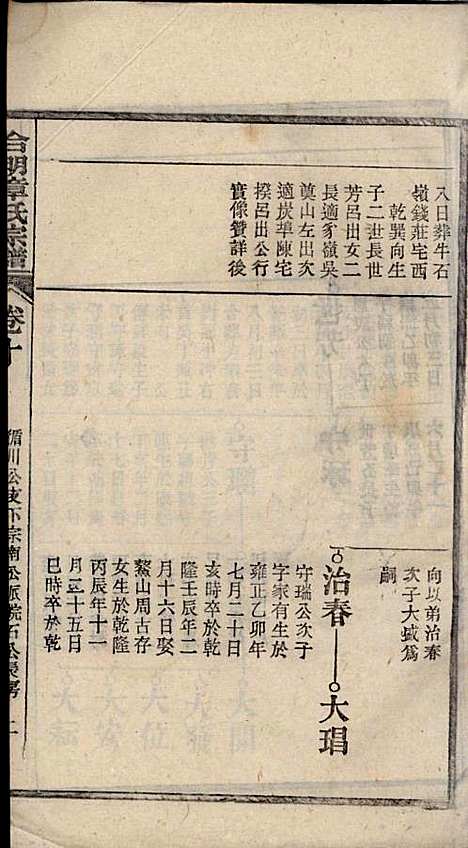 入日葬牛石
嶺錢莊宅西
乾巽向生
子二世長世
芳呂出女二
長適豸嶺吳
奠山左出次
適炭埠陳宅
揆呂出公行
實像贊詳後
向以弟治春
次子大盛爲
嗣
治春 大琩
守瑞公次子
字家有生於
雍正乙卯年
七月二十日
亥時卒於乾
隆壬辰年二
月十六日娶
鰲山周古存
女生於乾隆
丙辰年十一
月三十五日
巳時卒於乾
合朋章氏宗譜 卷十 循川公支下宗南公派院石公長房 二